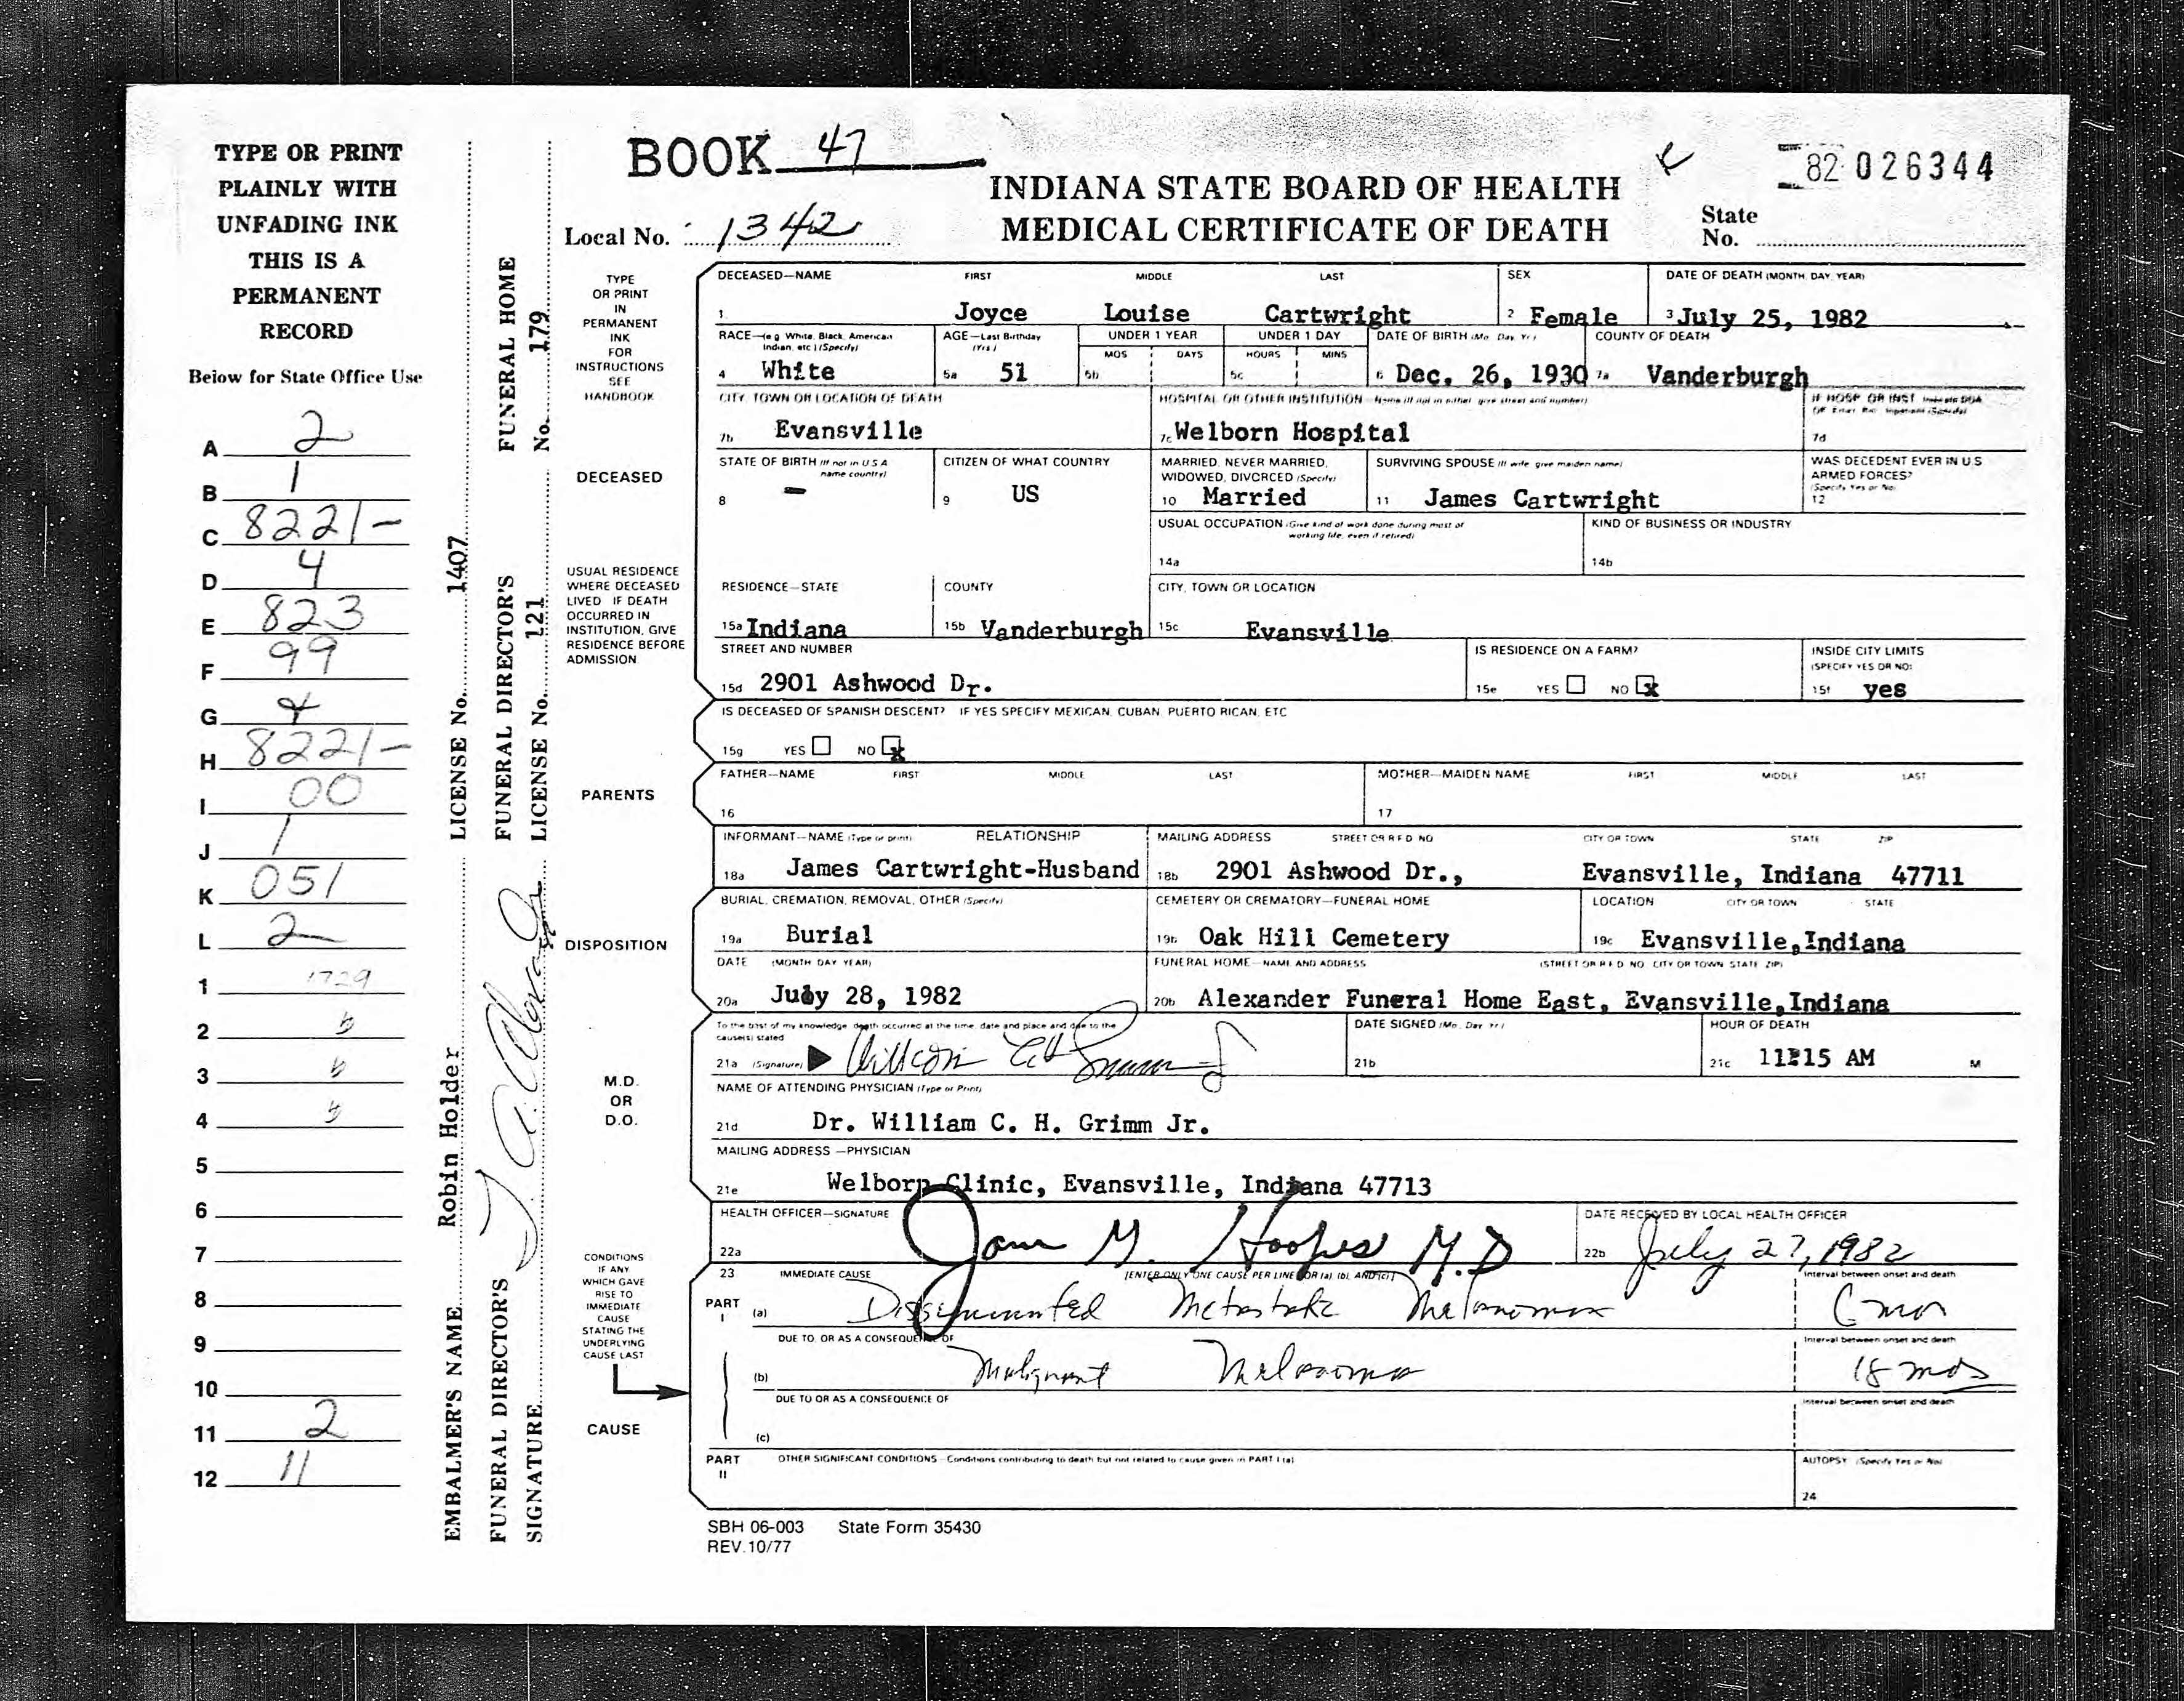 TYPE OR PRINT
PLAINLY WITH
UNFADING INK
THIS IS A
PERMANENT
RECORD
Below for State Office Use
A 2
B 1
C 8221-
D 4
E 823
F 99
G
H 8221-
I 00
J 1
K 051
L 2
1 1729
2
3
4
5
6
7
8
9
10
11 2
12 11
EMBALMER'S NAME Robin Holder LICENSE No. 1407
FUNERAL DIRECTOR'S SIGNATURE
FUNERAL DIRECTOR'S LICENSE No. 121
FUNERAL HOME No. 179
BOOK 47
82 026344
INDIANA STATE BOARD OF HEALTH
MEDICAL CERTIFICATE OF DEATH
Local No. 1342
State No.
TYPE OR PRINT IN PERMANENT INK FOR INSTRUCTIONS SEE HANDBOOK
DECEASED—NAME FIRST MIDDLE LAST
1 Joyce Louise Cartwright
SEX
2 Female
DATE OF DEATH (MONTH, DAY, YEAR)
3 July 25, 1982
RACE—(e.g. White, Black, American Indian, etc.) (Specify)
4 White
AGE—Last Birthday (Yrs.)
5a 51
UNDER 1 YEAR
MOS DAYS
5b
UNDER 1 DAY
HOURS MINS
5c
DATE OF BIRTH (Mo. Day, Yr.)
6 Dec. 26, 1930
COUNTY OF DEATH
7a Vanderburgh
CITY, TOWN OR LOCATION OF DEATH
7b Evansville
HOSPITAL OR OTHER INSTITUTION—Name (If not in either, give street and number)
7c Welborn Hospital
IF HOSP. OR INST. Indicate DOA
7d
DECEASED
STATE OF BIRTH (If not in U.S.A. name country)
8 -
CITIZEN OF WHAT COUNTRY
9 US
MARRIED, NEVER MARRIED, WIDOWED, DIVORCED (Specify)
10 Married
SURVIVING SPOUSE (If wife, give maiden name)
11 James Cartwright
WAS DECEDENT EVER IN U.S. ARMED FORCES? (Specify Yes or No)
12
USUAL OCCUPATION (Give kind of work done during most of working life, even if retired)
14a
KIND OF BUSINESS OR INDUSTRY
14b
USUAL RESIDENCE WHERE DECEASED LIVED IF DEATH OCCURRED IN INSTITUTION, GIVE RESIDENCE BEFORE ADMISSION
RESIDENCE—STATE
15a Indiana
COUNTY
15b Vanderburgh
CITY, TOWN OR LOCATION
15c Evansville
STREET AND NUMBER
15d 2901 Ashwood Dr.
IS RESIDENCE ON A FARM?
15e YES NO x
INSIDE CITY LIMITS (SPECIFY YES OR NO)
15f yes
IS DECEASED OF SPANISH DESCENT? IF YES SPECIFY MEXICAN, CUBAN, PUERTO RICAN, ETC
15g YES NO x
PARENTS
FATHER—NAME FIRST MIDDLE LAST
16
MOTHER—MAIDEN NAME FIRST MIDDLE LAST
17
INFORMANT—NAME (Type or print) RELATIONSHIP
18a James Cartwright-Husband
MAILING ADDRESS STREET OR R.F.D. NO. CITY OR TOWN STATE ZIP
18b 2901 Ashwood Dr., Evansville, Indiana 47711
DISPOSITION
BURIAL, CREMATION, REMOVAL, OTHER (Specify)
19a Burial
CEMETERY OR CREMATORY—FUNERAL HOME
19b Oak Hill Cemetery
LOCATION CITY OR TOWN STATE
19c Evansville,Indiana
DATE (MONTH DAY YEAR)
20a July 28, 1982
FUNERAL HOME—NAME AND ADDRESS (STREET OR R.F.D. NO. CITY OR TOWN STATE ZIP)
20b Alexander Funeral Home East, Evansville,Indiana
M.D. OR D.O.
To the best of my knowledge, death occurred at the time, date and place and due to the cause(s) stated
21a (Signature) William
DATE SIGNED (Mo. Day Yr.)
21b
HOUR OF DEATH
21c 11:15 AM M
NAME OF ATTENDING PHYSICIAN (Type or Print)
21d Dr. William C. H. Grimm Jr.
MAILING ADDRESS —PHYSICIAN
21e Welborn Clinic, Evansville, Indiana 47713
HEALTH OFFICER—SIGNATURE
22a M. Hoopes M.D
DATE RECEIVED BY LOCAL HEALTH OFFICER
22b July 27, 1982
CONDITIONS IF ANY WHICH GAVE RISE TO IMMEDIATE CAUSE STATING THE UNDERLYING CAUSE LAST
CAUSE
23 IMMEDIATE CAUSE [ENTER ONLY ONE CAUSE PER LINE FOR (a), (b), AND (c)]
Interval between onset and death
PART I (a) Disseminated Metastatic Melanoma mos
DUE TO, OR AS A CONSEQUENCE OF
Interval between onset and death
(b) Malignant Melanoma 18 mos
DUE TO OR AS A CONSEQUENCE OF
Interval between onset and death
(c)
PART II OTHER SIGNIFICANT CONDITIONS—Conditions contributing to death but not related to cause given in PART I (a)
AUTOPSY (Specify Yes or No)
24
SBH 06-003 State Form 35430
REV.10/77